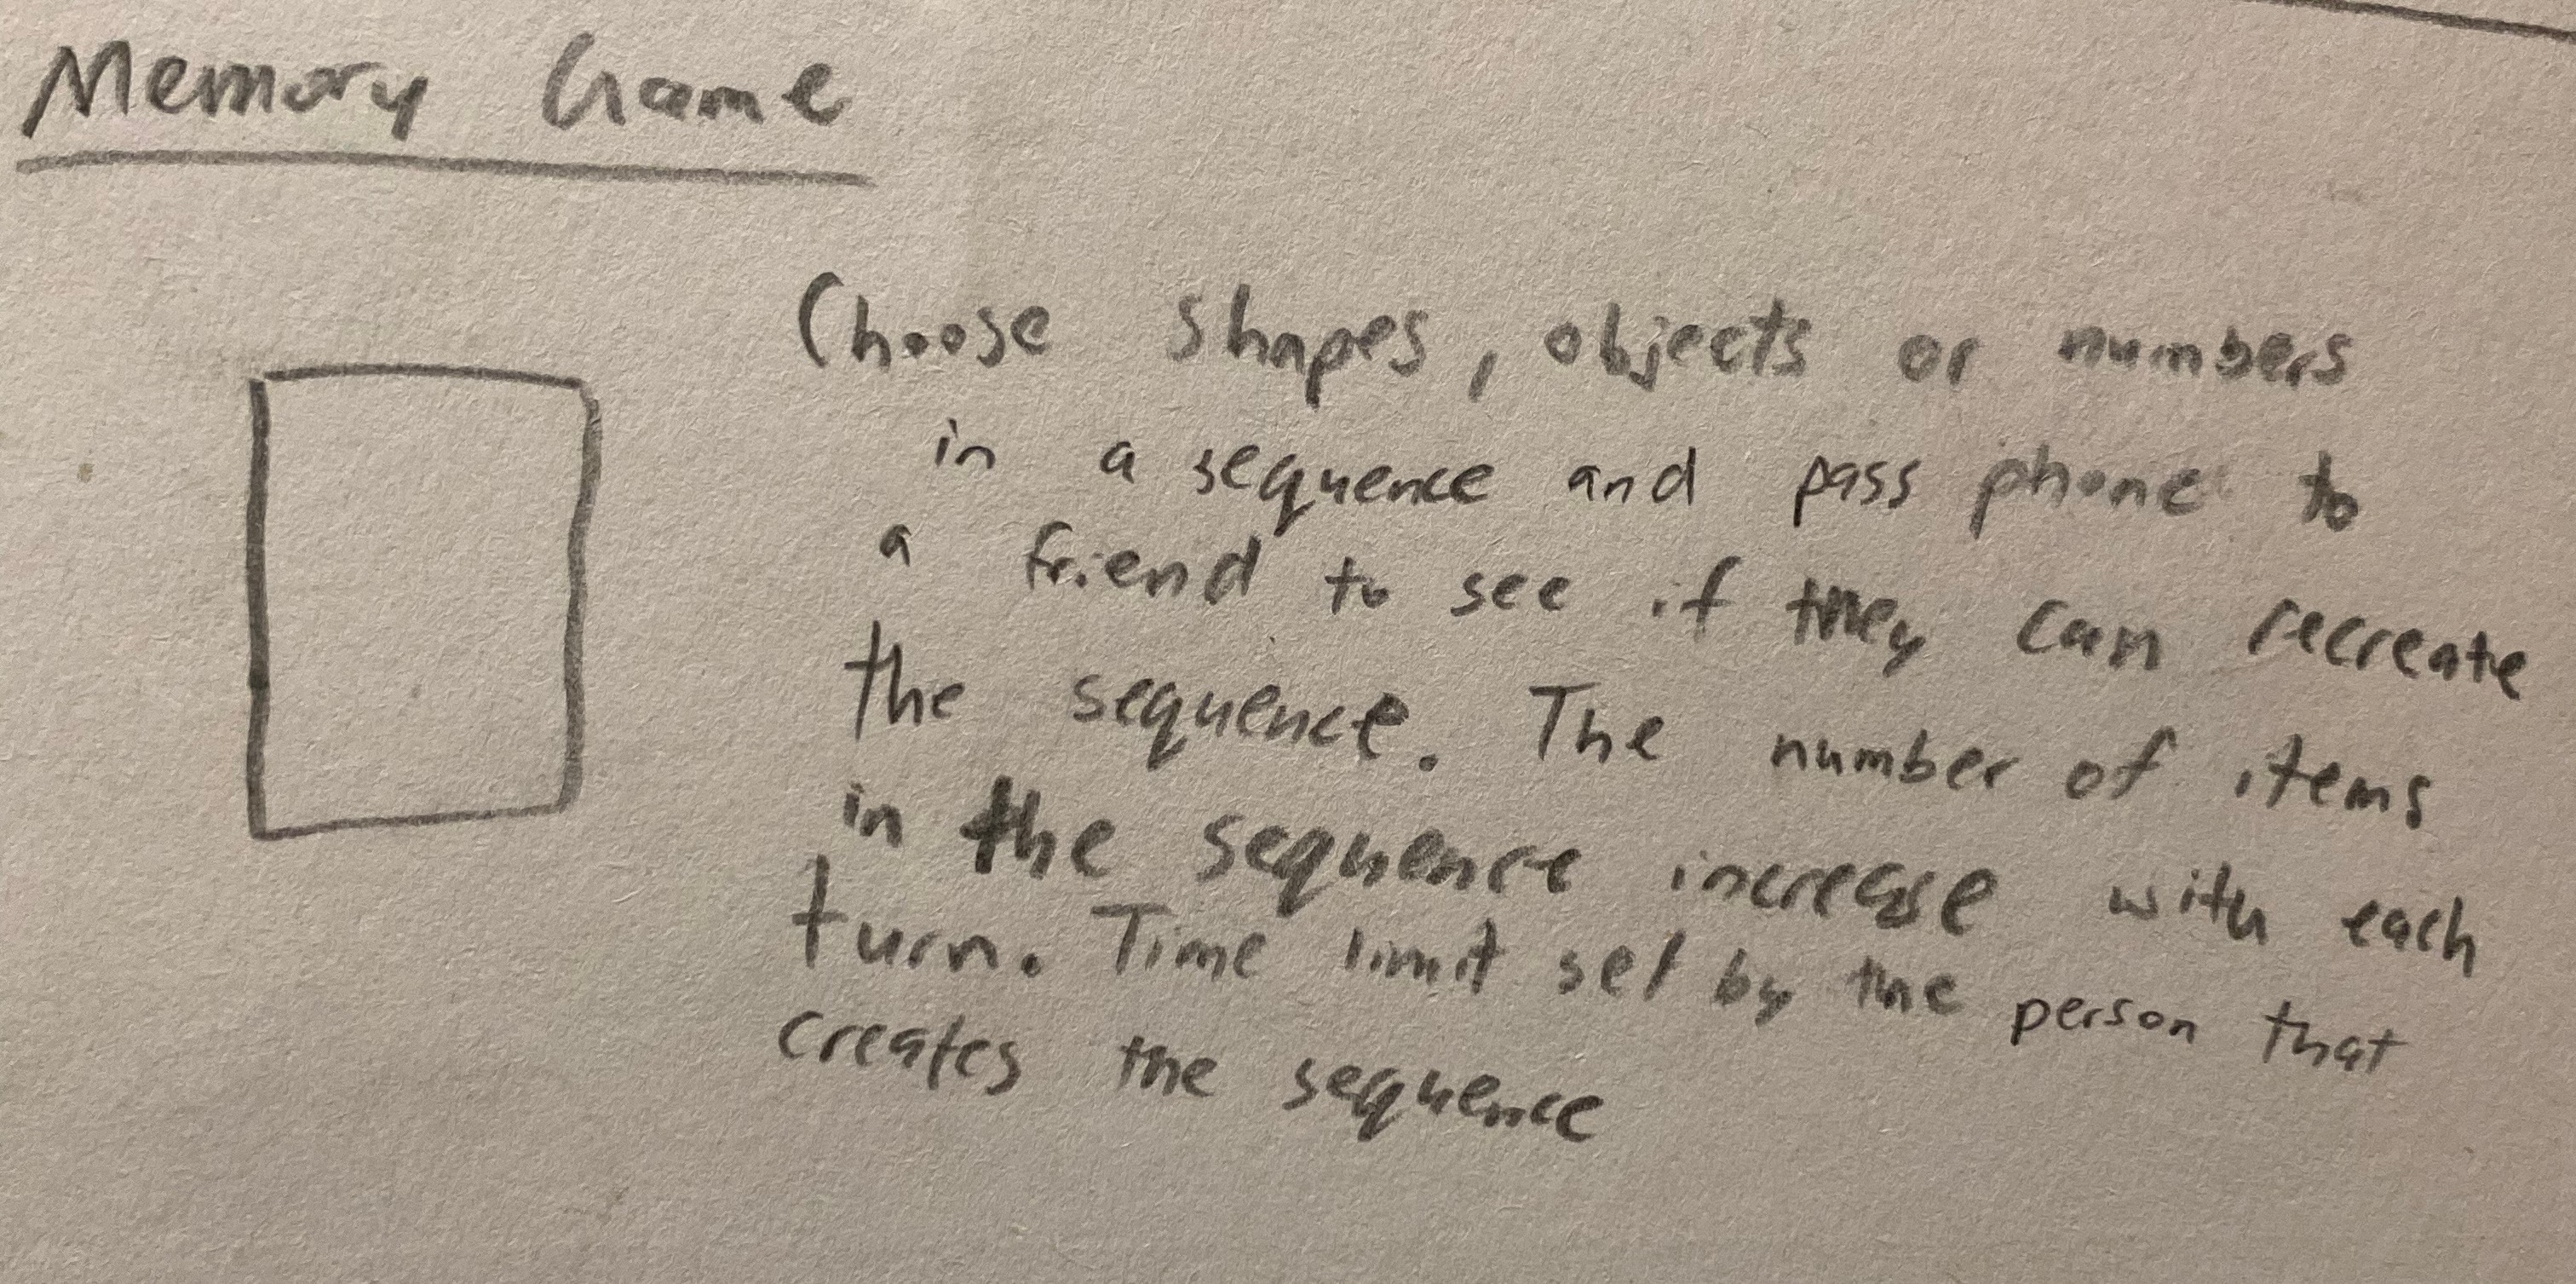 Memory Game
Choose shapes, objects or numbers
in a sequence and pass phone to
a friend to see if they can recreate
the sequence. The number of items
in the sequence increase with each
turn. Time limit set by the person that
creates the sequence